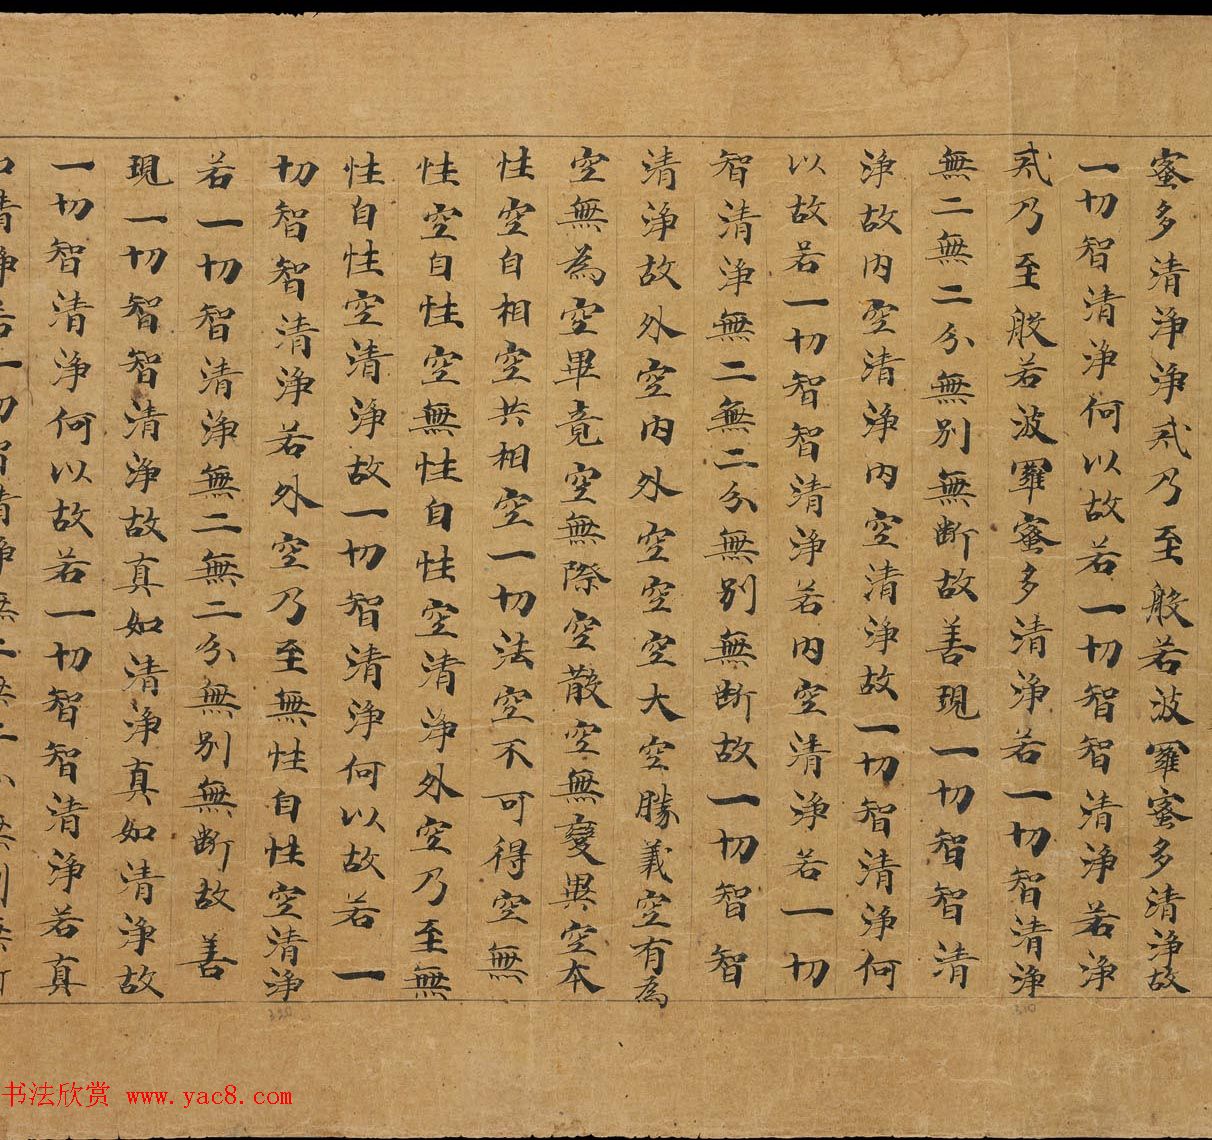 蜜多清淨淨戒乃至般若波羅蜜多清淨故
一切智清淨何以故若一切智智清淨若淨
戒乃至般若波羅蜜多清淨若一切智清淨
無二無二分無別無断故善現一切智智清
淨故内空清淨内空清淨故一切智清淨何
以故若一切智智清淨若内空清淨若一切
智清淨無二無二分無別無断故一切智智
清淨故外空内外空空空大空勝義空有為
空無為空畢竟空無際空散空無變異空本
性空自相空共相空一切法空不可得空無
性空自性空無性自性空清淨外空乃至無
性自性空清淨故一切智清淨何以故若一
切智智清淨若外空乃至無性自性空清淨
若一切智清淨無二無二分無別無断故善
現一切智智清淨故真如清淨真如清淨故
一切智清淨何以故若一切智智清淨若真
清淨若一切智清淨無二無二分無別無
书法欣赏 www.yac8.com